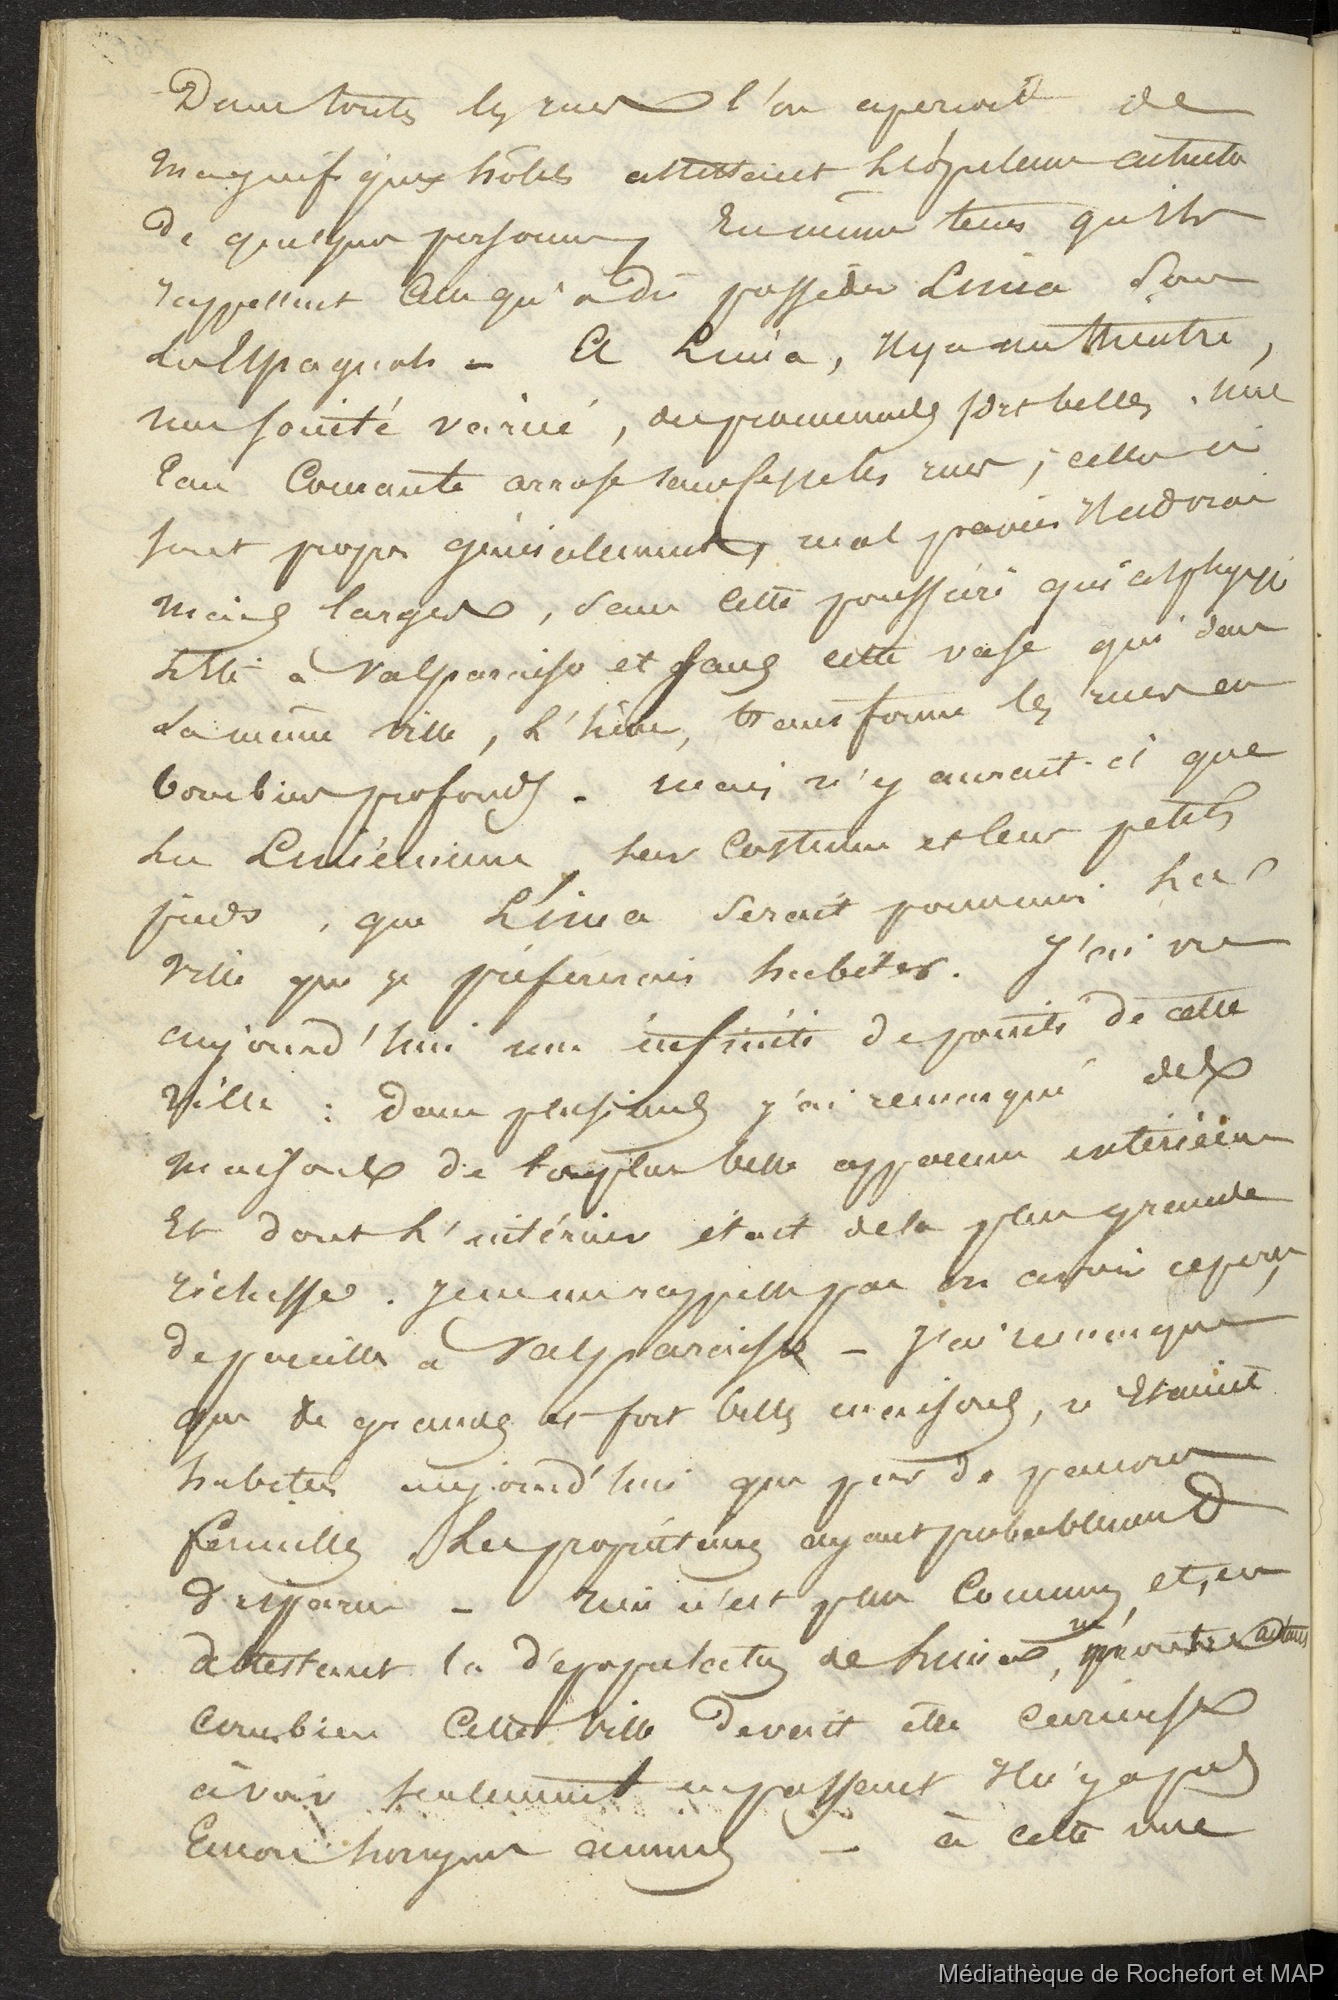 Dans toutes les rues l'on aperçoit de
magnifiques hôtels attestant l'opulence actuelle
de quelques personnes, en même tems qu'ils
rappellent celle qu'a dû posséder Lima sous
les Espagnols - A Lima, il y a un théatre,
une société variée, des promenades très belles. une
Eau courante arrose sans cesse les rues ; celles ci
sont propres généralement, mal pavées il est vrai
mais larges, sans cette poussière qui asphyxie
l'été à Valparaiso et sans cette vase qui dans
la même ville, l'hiver, transforme les rues en
bourbiers profonds. mais n'y aurait-il que
les Liméniennes, leur costume et leurs petits
pieds, que Lima serait pour moi la
ville que je préférerais habiter. J'ai vu
aujourd'hui une infinité de points de cette
ville : dans plusieurs j'ai remarqué des
maisons de la plus belle apparence extérieure
Et dont l'intérieur était de la plus grande
richesse. je ne me rappelle pas en avoir aperçu
de pareilles à Valparaiso - J'ai remarqué
que de grandes et fort belles maisons, n'étaient
habitées aujourd'hui que par de pauvres
familles, les propriétaires ayant probablement
disparu - rien n'est plus commun, et, en
attestant la dépopulation de Lima, ne montre
combien cette ville devait être curieuse
à voir seulement en passant il n'y a pas
Encore longues années - à cette vue
Médiathèque de Rochefort et MAP